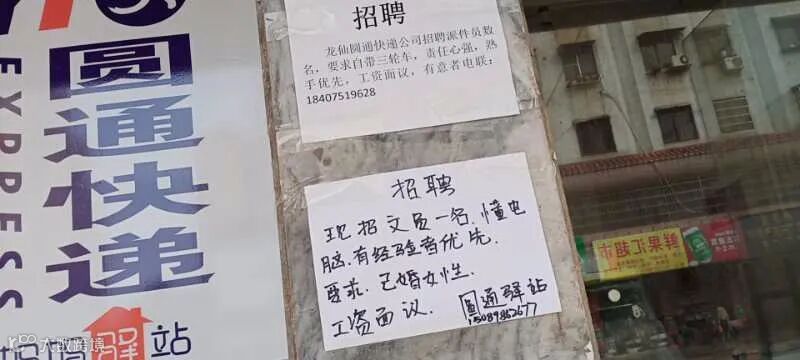 圆通快递
EXPRESS
驿站
招聘
龙仙圆通快递公司招聘派件员数
名，要求自带三轮车，责任心强，熟
手优先，工资面议，有意者电联：
18407519628
招聘
现招文员一名，懂电
脑，有经验者优先．
要求．已婚女性．
工资面议．
圆通驿站
鲜果汇超市
大数跨境